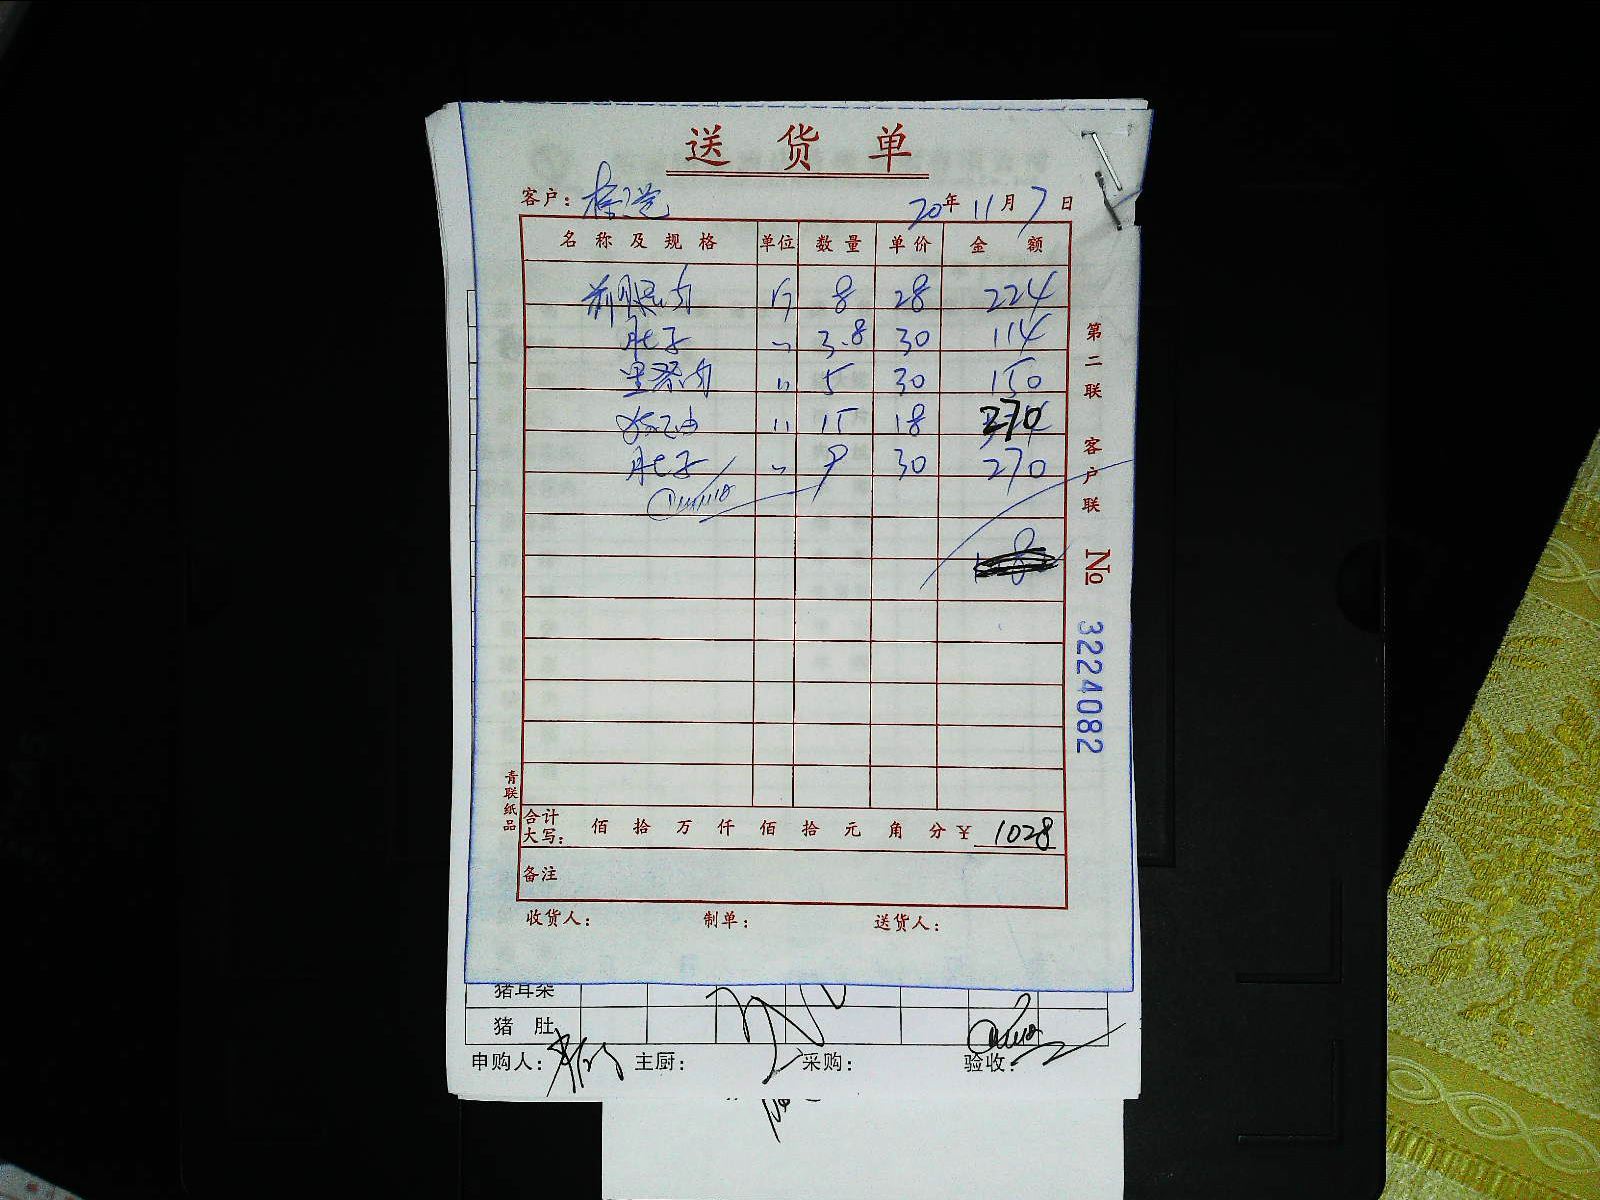 送货单
客户：
20年11月7日
名称及规格 单位 数量 单价 金额
前腿肉 斤 8 28 224
肚子 〃 3.8 30 114
里脊肉 〃 5 30 150
油 〃 15 18 270
肚子 〃 9 30 270
第二联 客户联
№ 3224082
青联纸品
合计大写： 佰 拾 万 仟 佰 拾 元 角 分 ¥ 1028
备注
收货人： 制单： 送货人：
猪耳朵
猪肚
申购人： 主厨： 采购： 验收：